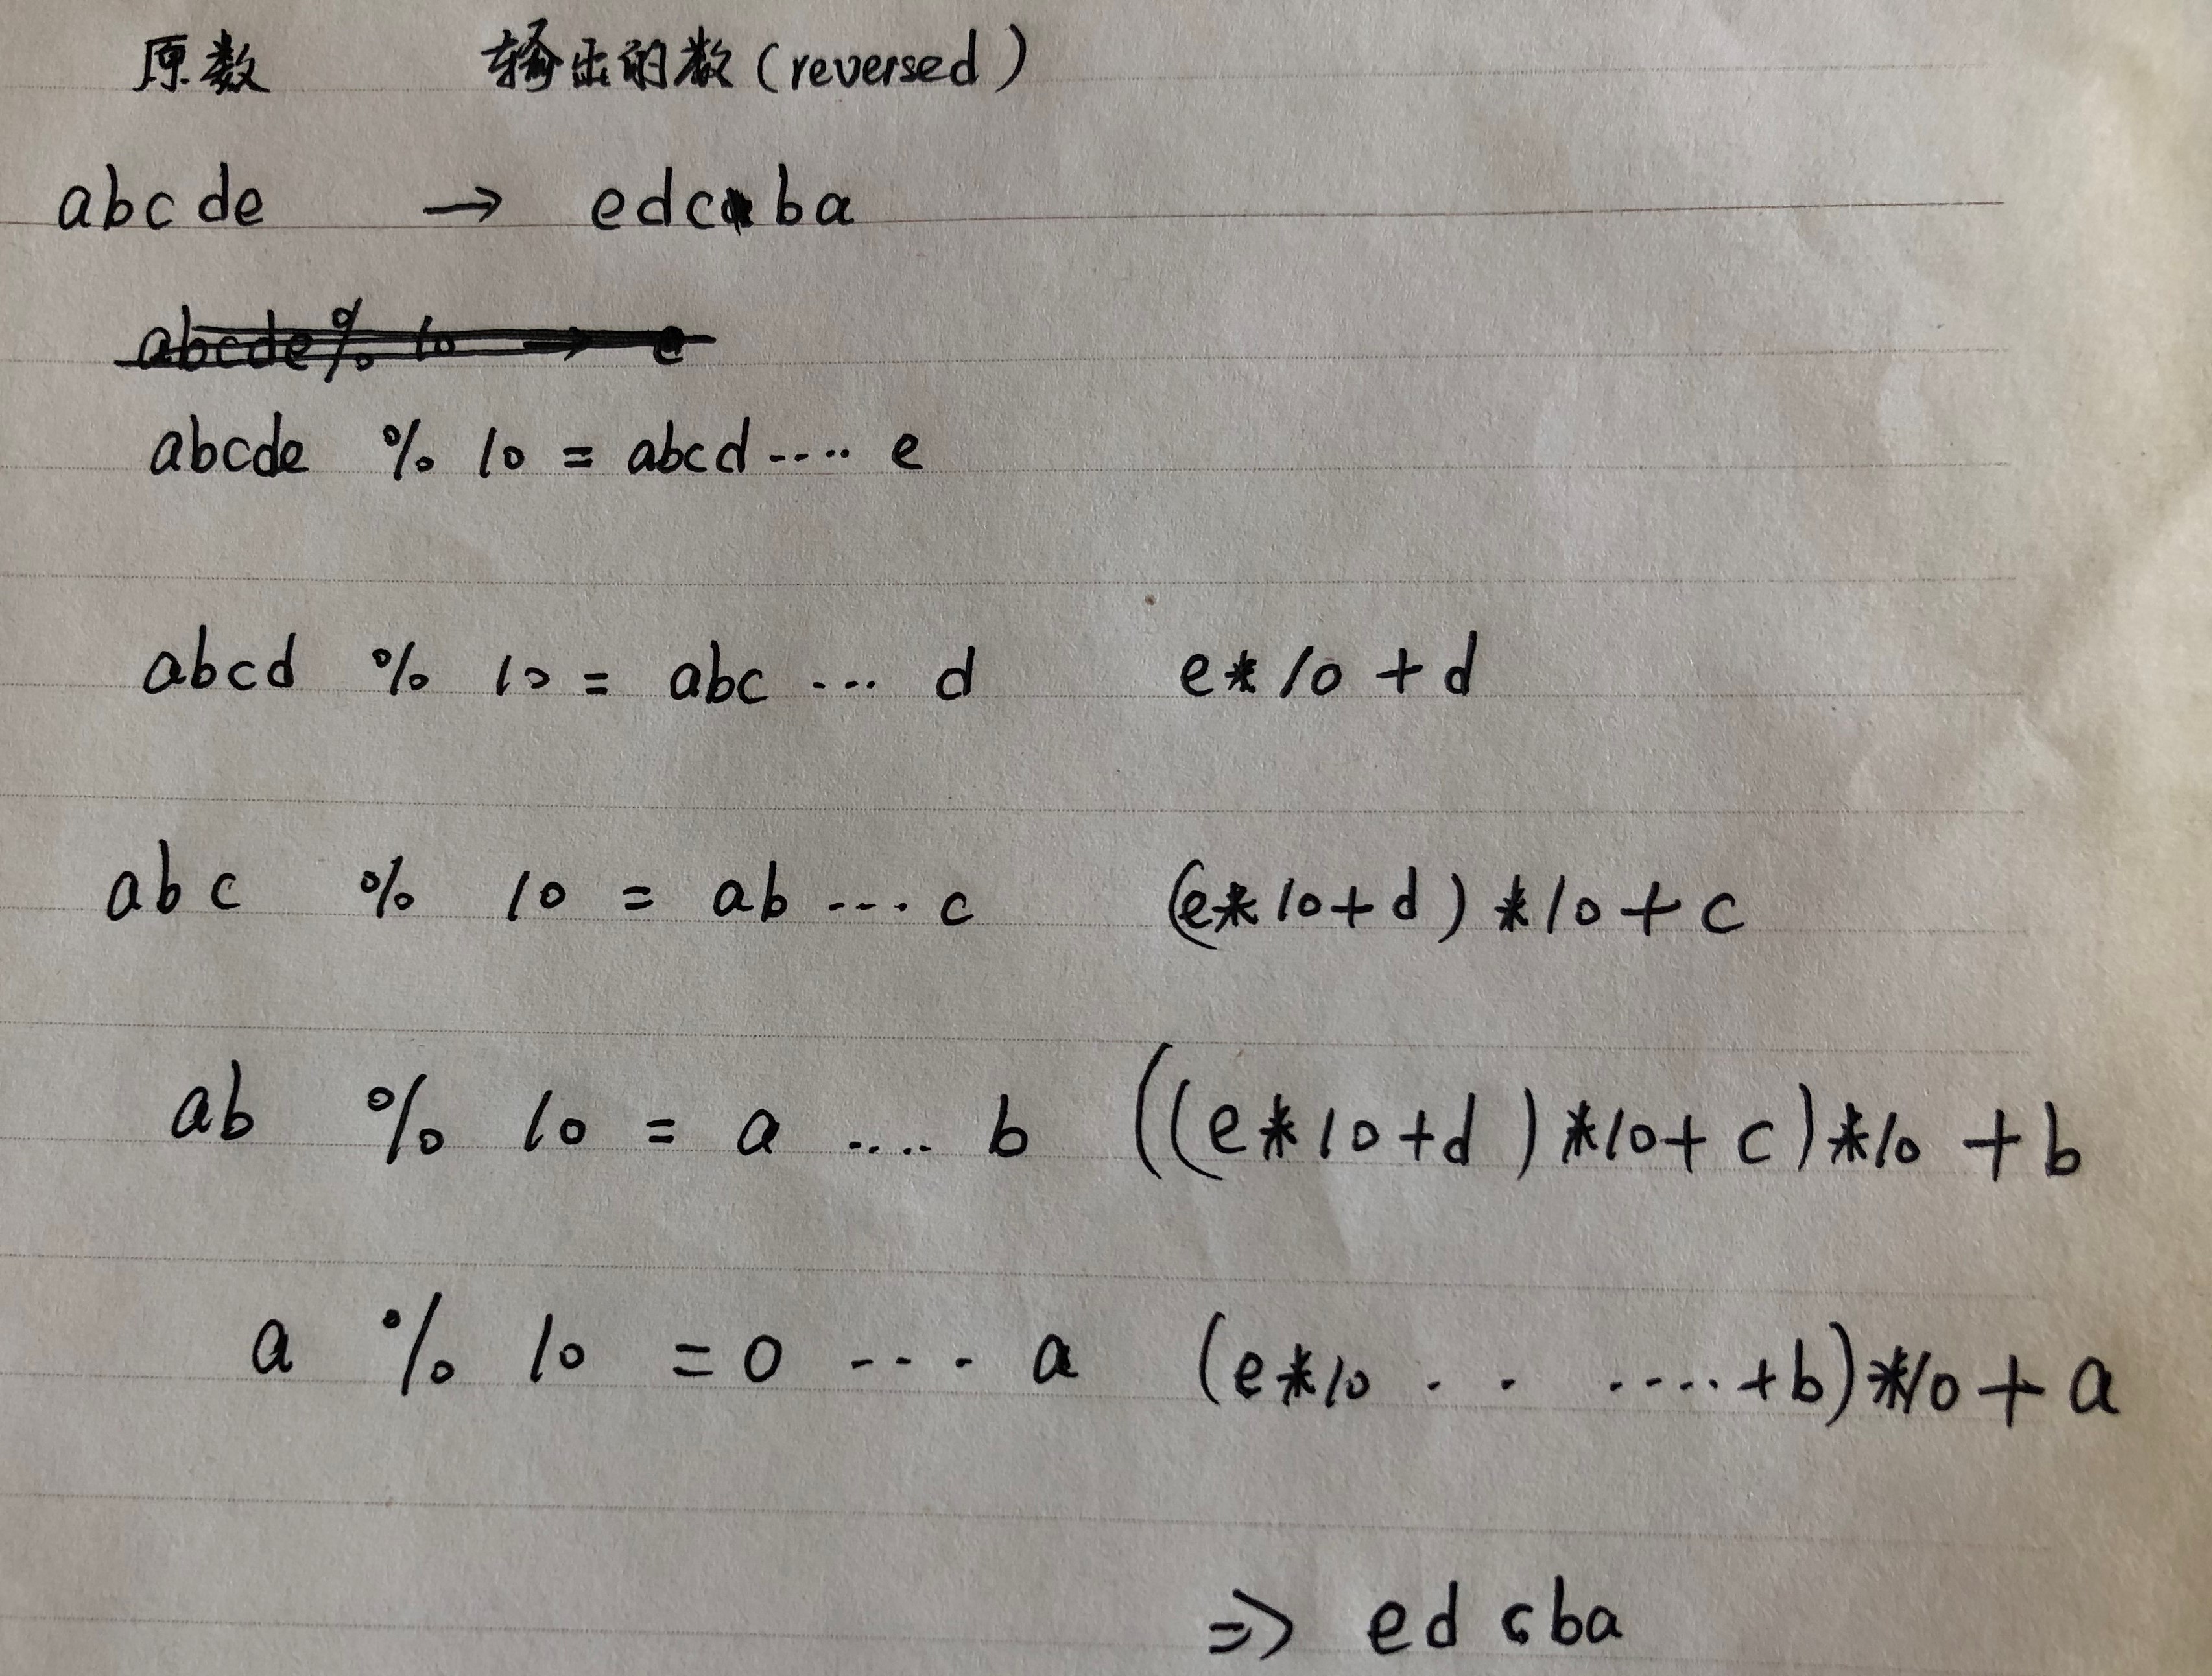 原数 输出的数(reversed)
abcde → edcba
abcde % 10 → e
abcde % 10 = abcd ····· e
abcd % 10 = abc ··· d e*10+d
abc % 10 = ab ···· c (e*10+d)*10+c
ab % 10 = a ···· b ((e*10+d)*10+c)*10+b
a % 10 = 0 ···· a (e*10 · · ·····+b)*10+a
=> edcba